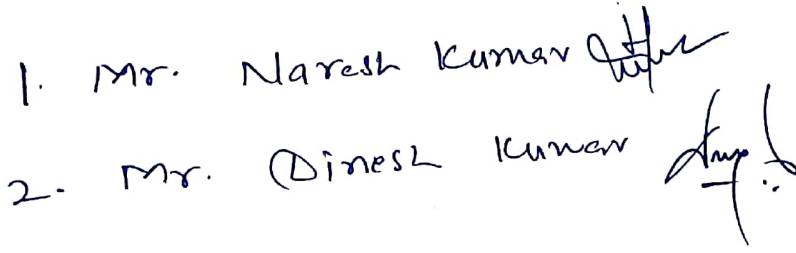 1. Mr. Naresh Kumar
2. Mr. Dinesh Kumar